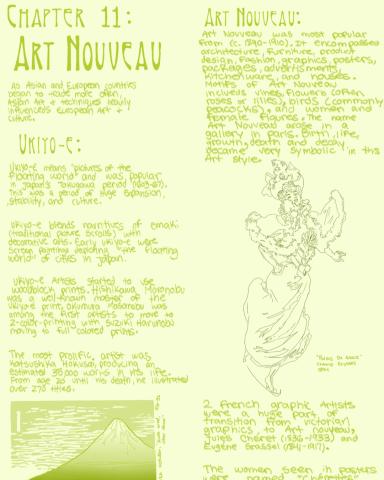 CHAPTER 11:
ART NOUVEAU
As Asian and European countries
began to trade more often,
Asian Art + techniques heavily
influenced European Art +
culture.
UKIYO-E:
Ukiyo-e means "pictures of the
floating world" and was popular
in Japan's Tokugawa period
This was a period of huge expansion,
stability, and culture.
Ukiyo-e blends narritives of emaki
(traditional picture scrolls) with
decorative arts. Early Ukiyo-e were
screen painting depicting "the floating
world" of cities in Japan.
Ukiyo-e Artists started to use
woodblock prints. Hishikawa Moronobu
was a well-known master of the
Ukiyo-e print. Okumura Masanobu was
among the first artists to move to
2-color-printing with Suzuki Harunobu
moving to full colored prints.
The most prolific artist was
Katsushika Hokusai, producing an
estimated 35,000 works in his life.
From age 20 until his death, he illustrated
over 270 titles.
ART NOUVEAU:
Art Nouveau was most popular
from (c. 1890-1910). It encompassed
architecture, furniture, product
design, fashion, graphics, posters,
packages, advertisments,
kitchenware, and houses.
Motifs of Art Nouveau
included vines, flowers (often
roses or lilies), birds (commonly
peacocks), and women and
female figures. The name
Art Nouveau arose in a
gallery in paris. Birth, life,
growth, death and decay
became very symbolic in this
Art style.
2 French graphic Artists
were a huge part of
transition from victorian
graphics to Art nouveau,
Jules Chéret (1836-1933) and
Eugène Grasset (1841-1917).
The women seen in posters
were named "Chérettes"